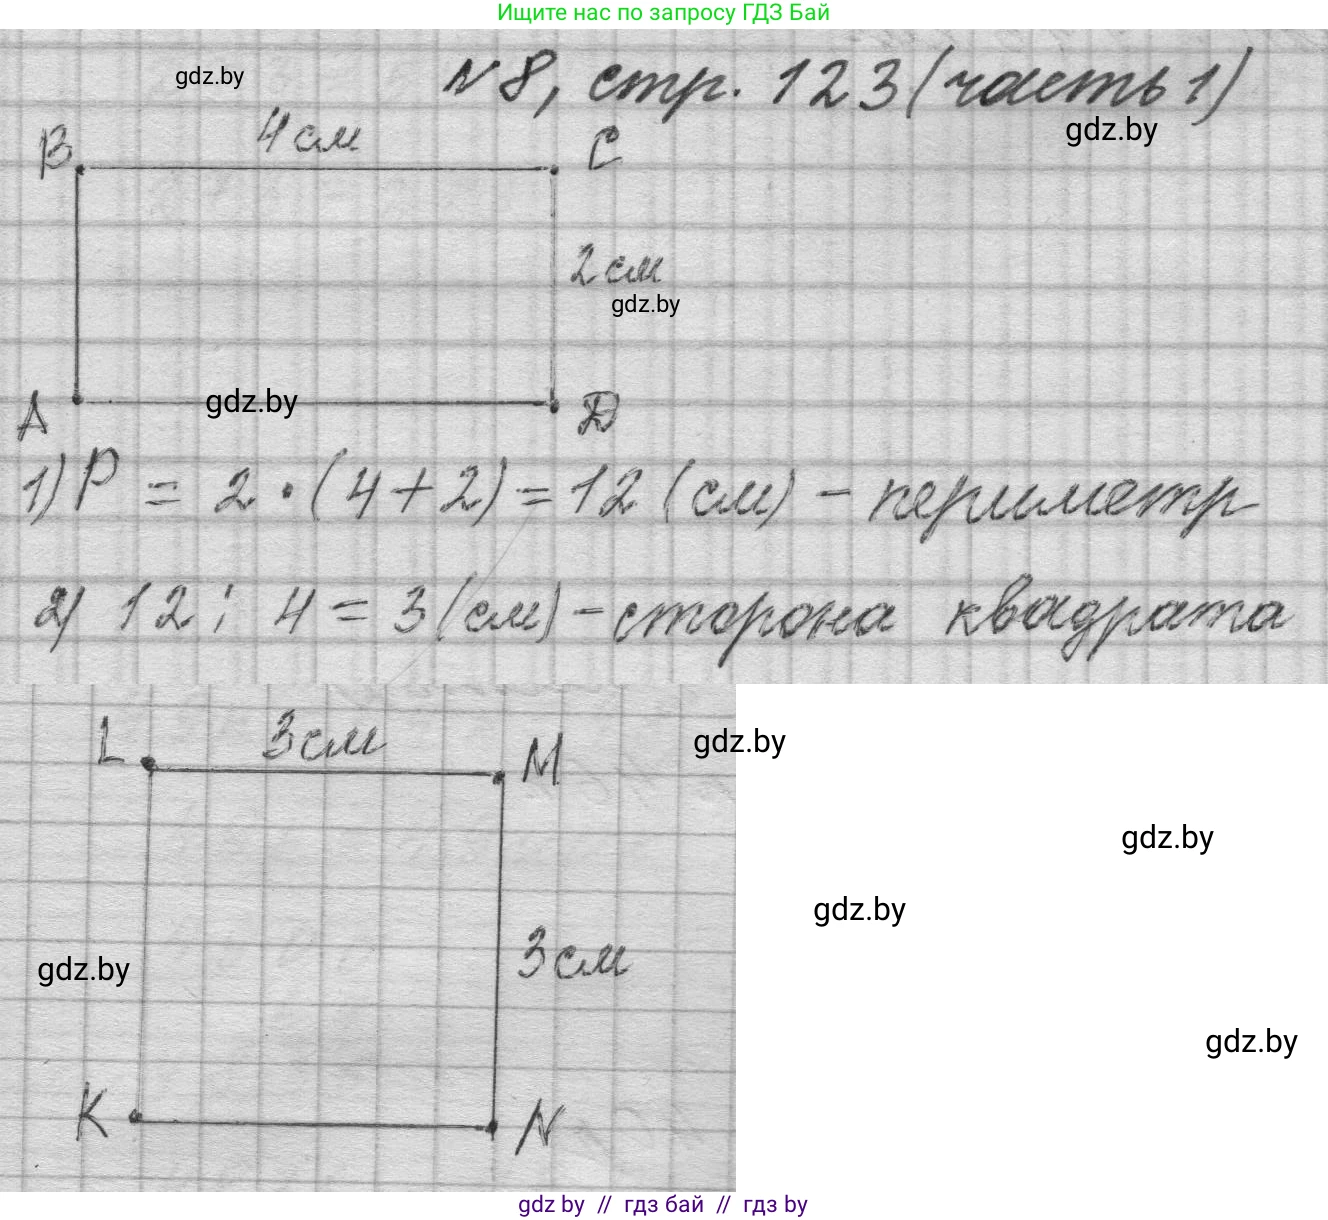 Ищите нас по запросу ГДЗ Бай
gdz.by
N 8, стр. 123 (часть 1)
gdz.by
B 4 см C
2 см
gdz.by
A gdz.by D
1) P = 2 · (4 + 2) = 12 (см) – периметр
2) 12 : 4 = 3 (см) – сторона квадрата
L 3 см M
gdz.by
gdz.by
gdz.by
3 см
gdz.by
gdz.by
K N
gdz by // гдз бай // гдз by